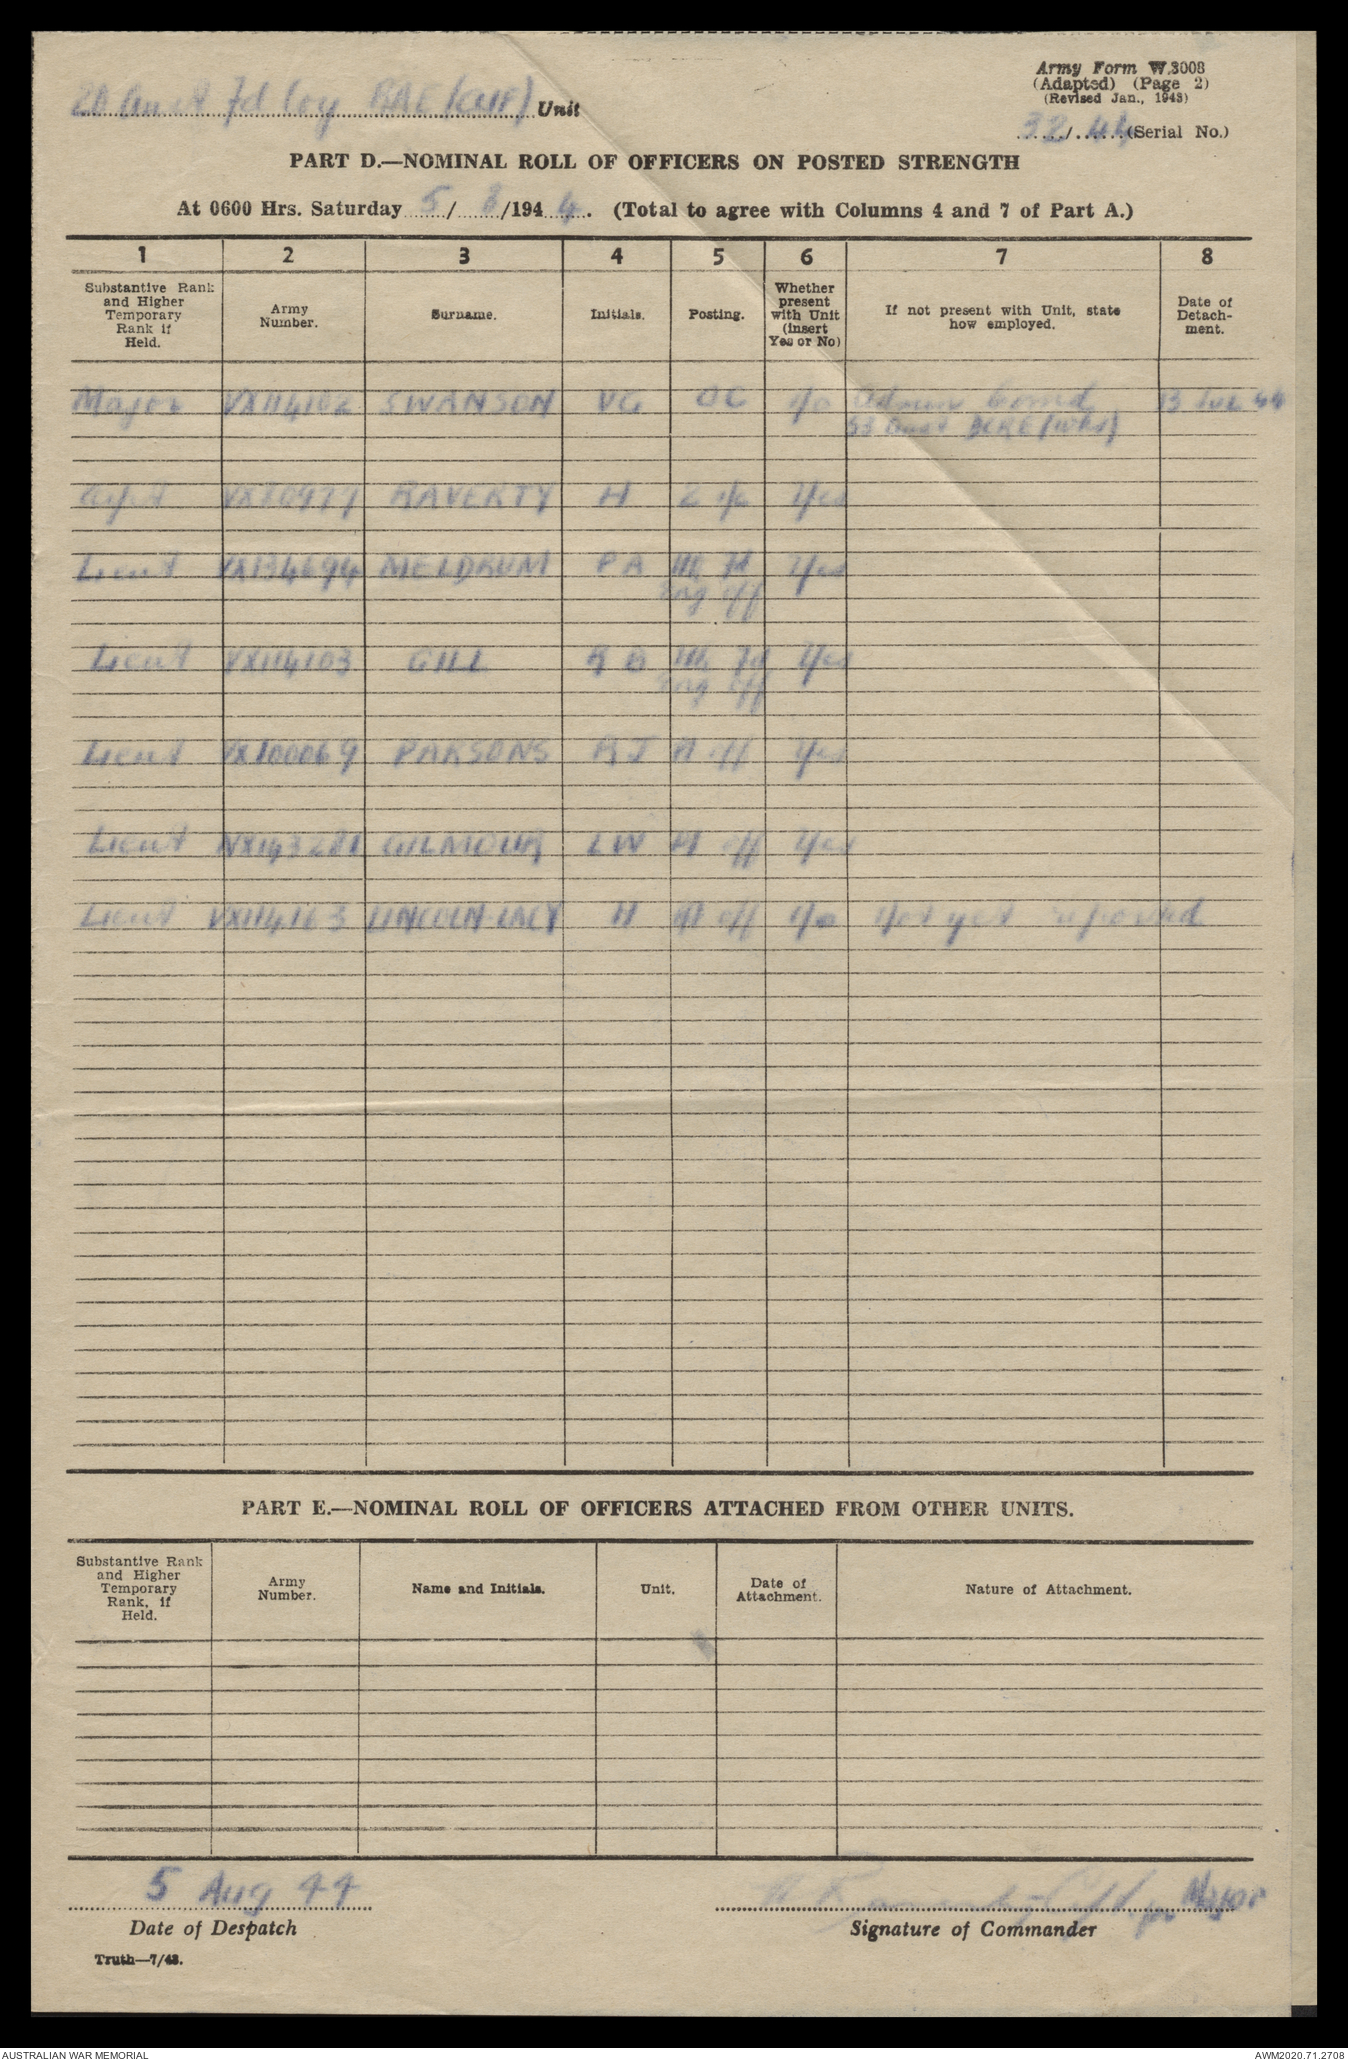 20 Aust Fd Coy RAE (AIF) Unit
Army Form W.3008
(Adapted) (Page 2)
(Revised Jan., 1943)
32/44 (Serial No.)
PART D.—NOMINAL ROLL OF OFFICERS ON POSTED STRENGTH
At 0600 Hrs. Saturday 5/8/1944. (Total to agree with Columns 4 and 7 of Part A.)
1 2 3 4 5 6 7 8
Substantive Rank and Higher Temporary Rank if Held. Army Number. Surname. Initials. Posting. Whether present with Unit (insert Yes or No) If not present with Unit, state how employed. Date of Detachment.
Major VX114102 SWANSON VG OC No Admin Comd 13 Jul 44
53 Aust DCRE (Wks)
Capt VX80977 RAVERTY H 2 i/c Yes
Lieut VX134694 MELDRUM P A Fd Yes
Eng Off
Lieut VX114103 GILL R B Fd Yes
Eng Off
Lieut VX100069 PARSONS R J Off Yes
Lieut NX143281 GILMOUR L W Off Yes
Lieut VX114163 LINCOLN-LACY H Off No Not yet reported
PART E.—NOMINAL ROLL OF OFFICERS ATTACHED FROM OTHER UNITS.
Substantive Rank and Higher Temporary Rank, if Held. Army Number. Name and Initials. Unit. Date of Attachment. Nature of Attachment.
5 Aug 44
H Raverty Capt for Major
Date of Despatch
Signature of Commander
Truth—7/43.
AUSTRALIAN WAR MEMORIAL
AWM2020.71.2708